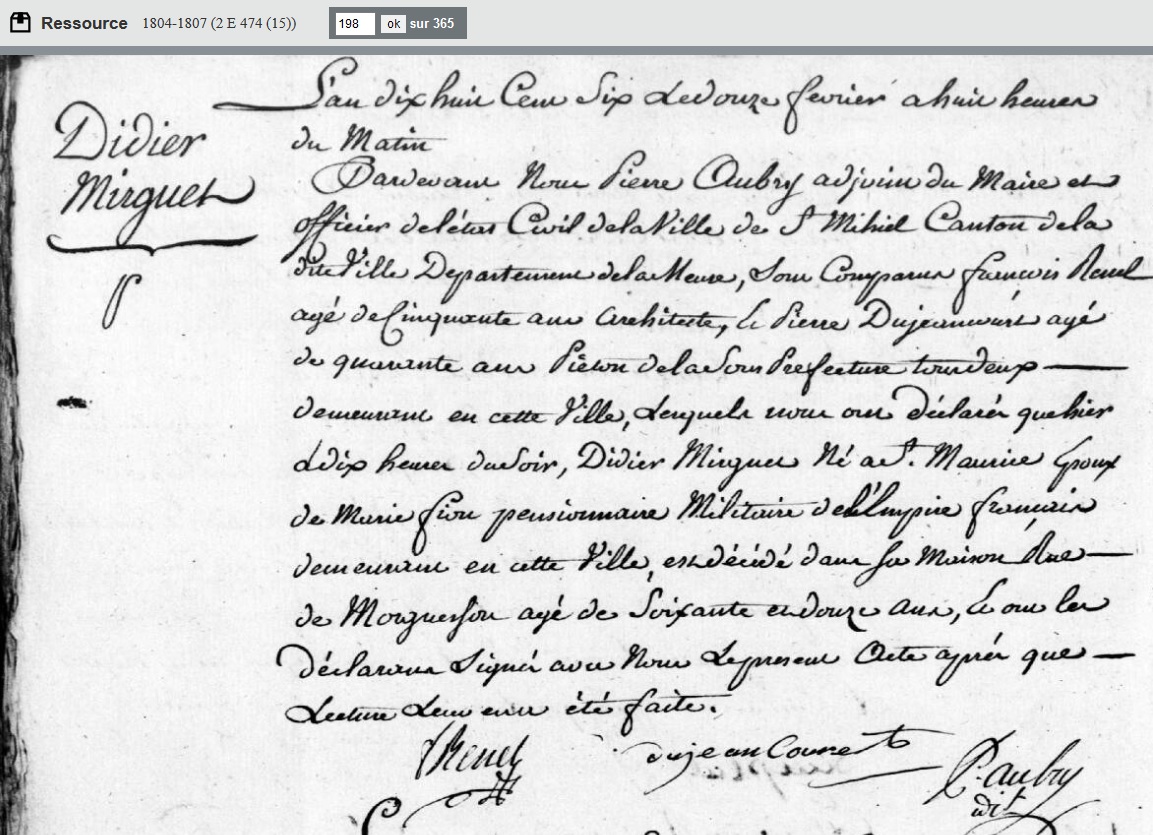 Ressource 1804-1807 (2 E 474 (15)) 198 ok sur 365
Didier
Mirguet
L'an dix huit Cent Six Le douze fevrier a huit heures
du Matin
Pardevant Nous Pierre Aubry adjoint du Maire et
officier de l'état Civil de la Ville de St Mihiel Canton de la
dite Ville Departement de la Meuse, Sont Comparus françois Renel
agé de Cinquante ans Architecte, & Pierre Dujeancourt agé
de quarante ans Piéton de la Sous Prefecture tous deux
demeurant en cette Ville, Lesquels nous ont déclarés que hier
à dix heures du Soir, Didier Mirguet Né a St. Maurice Epoux
de Marie pensionnaire Militaire de l'Empire français
demeurant en cette Ville, est décédé dans sa Maison Rue
de agé de Soixante et douze ans, & ont les
déclarans Signé avec Nous Le present Acte après que
Lecture Leur en a été faite.
dujeanCourt
P. aubry
adjt